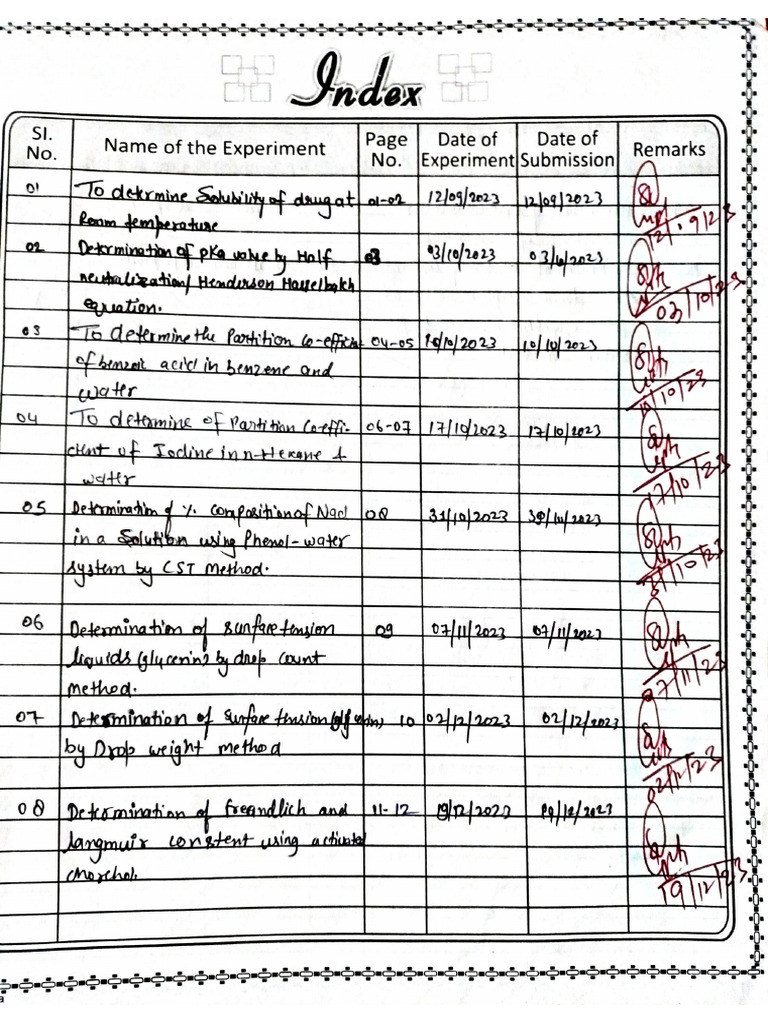 Index
Sl. No. Name of the Experiment Page No. Date of Experiment Date of Submission Remarks
01 To determine Solubility of drug at 01-02 12/09/2023 12/09/2023
Room temperature 12/09/23
02 Determination of pKa value by Half 03 03/10/2023 03/10/2023
neutralization/ Henderson Hasselbalch 03/10/23
equation.
03 To determine the Partition co-efficient 04-05 10/10/2023 10/10/2023
of benzoic acid in benzene and 10/10/23
water
04 To determine of Partition Coeffi- 06-07 17/10/2023 17/10/2023
cient of Iodine in n-Hexane & 17/10/23
water
05 Determination of % composition of Nacl 08 31/10/2023
in a Solution using Phenol-water 31/10/23
system by CST Method.
06 Determination of surface tension 09 07/11/2023 07/11/2023
liquids (glycerin) by drop count 07/11/23
method.
07 Determination of Surface tension 10 02/12/2023 02/12/2023
by Drop weight method
08 Determination of freandlich and 11-12 19/12/2023 19/12/2023
langmuir constent using activated
chorchol. 19/12/23